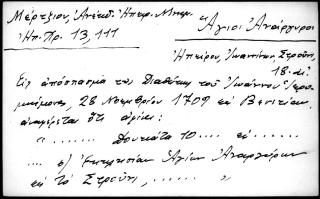 Μέρτζιου, Ἀνέκδ. Ἠπειρ. Μνημ.
Ἠπ. Χρ. 13, 111
Ἅγιοι Ἀνάργυροι
Ἠπείρου, Ἰωαννίνων, Στρούνι,
18. αἰ.
Εἰς ἀπόσπασμα τῆς Διαθήκης τοῦ Ἰωάννου
28 Νοεμβρίου 1709 ἐν Βενετίᾳ,
ἀναφέρεται ὅτι ἀφίνει:
" ...... Δουκάτα 10 .... εἰς ......
.... ε) Ἐκκλησίαν Ἁγίων Ἀναργύρων
εἰς τὸ Στρούνι, ...... "